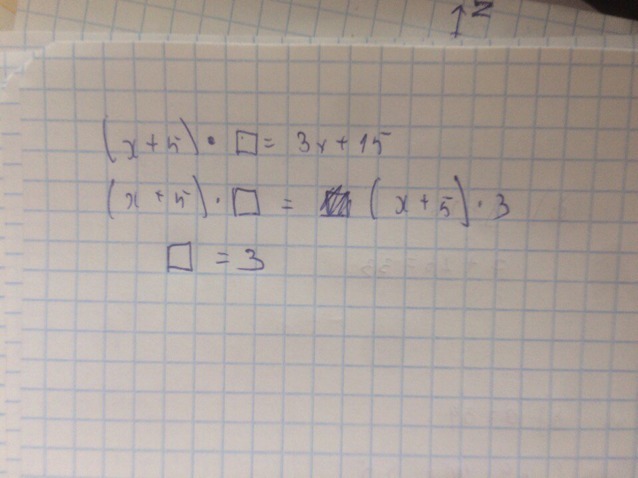 N
(x+5)·□= 3x+15
(x+5)·□ = (x+5)·3
□ = 3